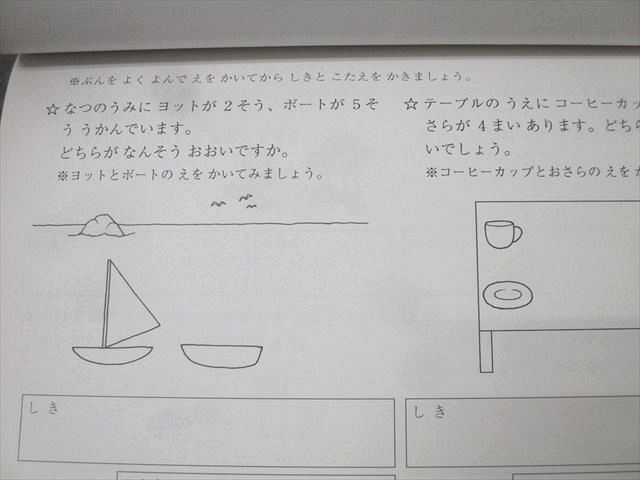 ※ぶんを よく よんで えを かいてから しきと こたえを かきましょう。
☆ なつのうみに ヨットが 2そう、ボートが 5そ
う うかんでいます。
どちらが なんそう おおいですか。
※ヨットとボートの えを かいてみましょう。
しき
☆ テーブルの うえに コーヒーカッ
さらが 4まい あります。どちら
いでしょう。
※コーヒーカップとおさらの えを か
しき